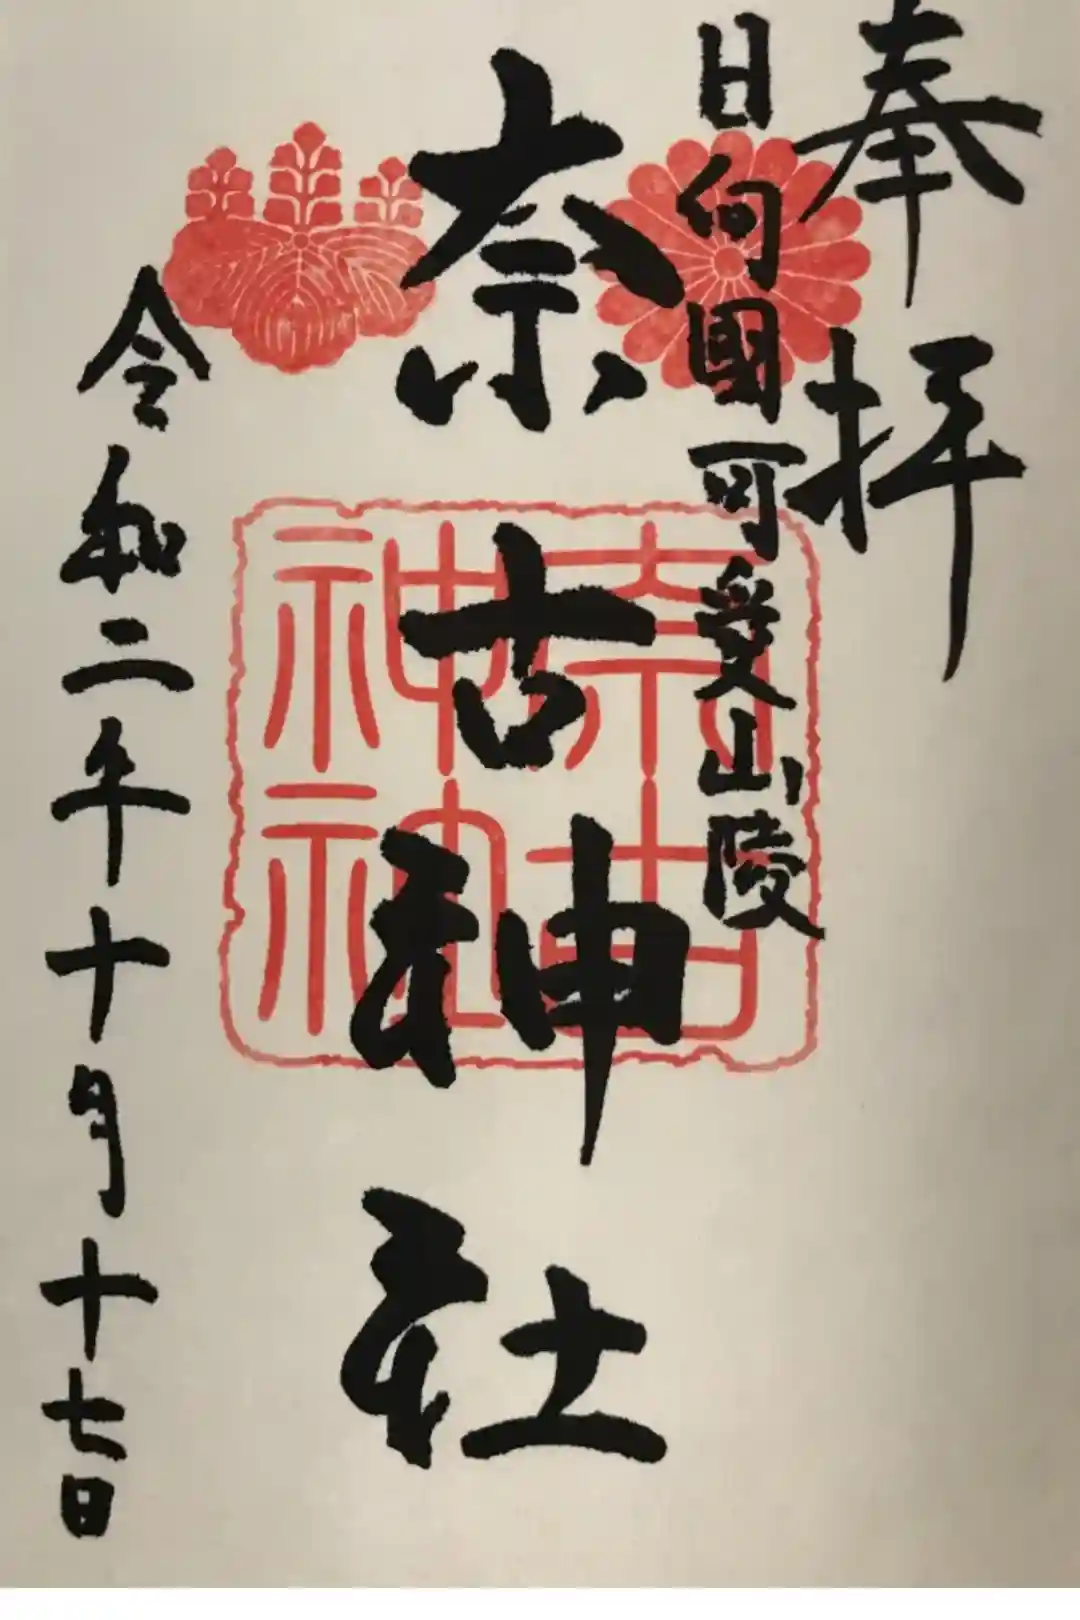 奉拝
日向國可愛山陵
奈古神社
奈古
神社
令和二年十月十七日